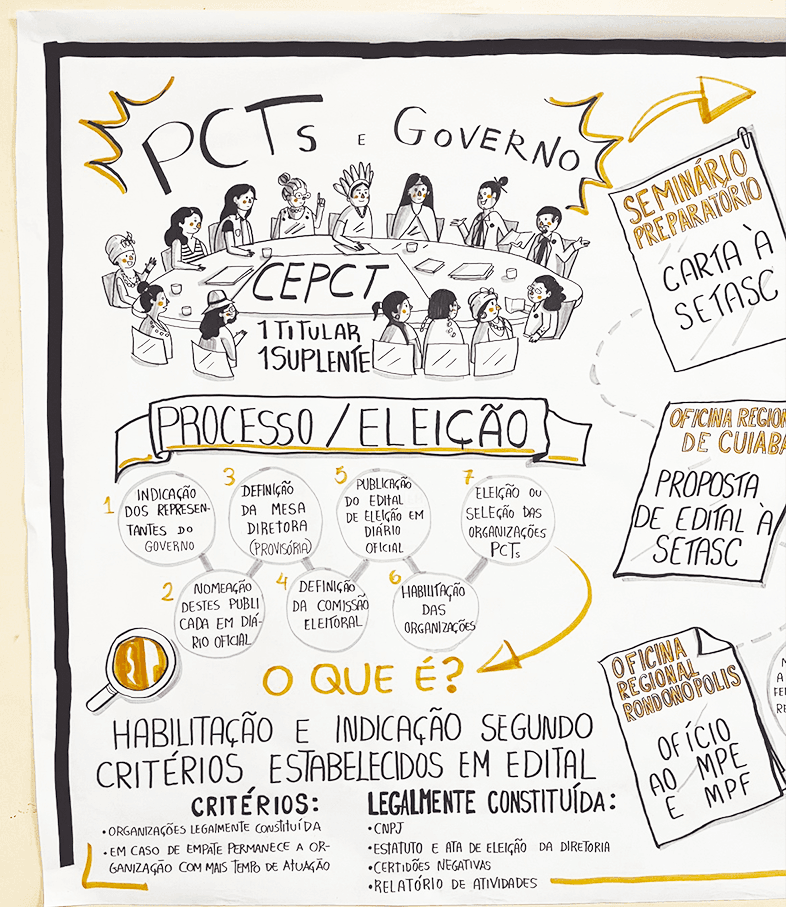 PCTs E GOVERNO
CEPCT
1 TITULAR
1 SUPLENTE
PROCESSO / ELEIÇÃO
1
INDICAÇÃO
DOS REPRESEN-
TANTES DO
GOVERNO
2
NOMEAÇÃO
DESTES PUBLI
CADA EM DIÁ-
RIO OFICIAL
3
DEFINIÇÃO
DA MESA
DIRETORA
(PROVISÓRIA)
4
DEFINIÇÃO
DA COMISSÃO
ELEITORAL
5
PUBLICAÇÃO
DO EDITAL
DE ELEIÇÃO EM
DIÁRIO
OFICIAL
6
HABILITAÇÃO
DAS
ORGANIZAÇÕES
7
ELEIÇÃO OU
SELEÇÃO DAS
ORGANIZAÇÕES
PCTs
O QUE É?
HABILITAÇÃO E INDICAÇÃO SEGUNDO
CRITÉRIOS ESTABELECIDOS EM EDITAL
CRITÉRIOS:
• ORGANIZAÇÕES LEGALMENTE CONSTITUÍDA
• EM CASO DE EMPATE PERMANECE A OR-
GANIZAÇÃO COM MAIS TEMPO DE ATUAÇÃO
LEGALMENTE CONSTITUÍDA:
• CNPJ
• ESTATUTO E ATA DE ELEIÇÃO DA DIRETORIA
• CERTIDÕES NEGATIVAS
• RELATÓRIO DE ATIVIDADES
SEMINÁRIO
PREPARATÓRIO
CARTA À
SETASC
OFICINA REGION
DE CUIABÁ
PROPOSTA
DE EDITAL À
SETASC
OFICINA
REGIONAL
RONDONÓPOLIS
OFÍCIO
AO MPE
E MPF